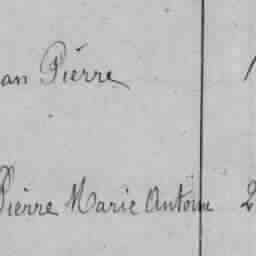 an Pierre 1
Pierre Marie Antoine 2